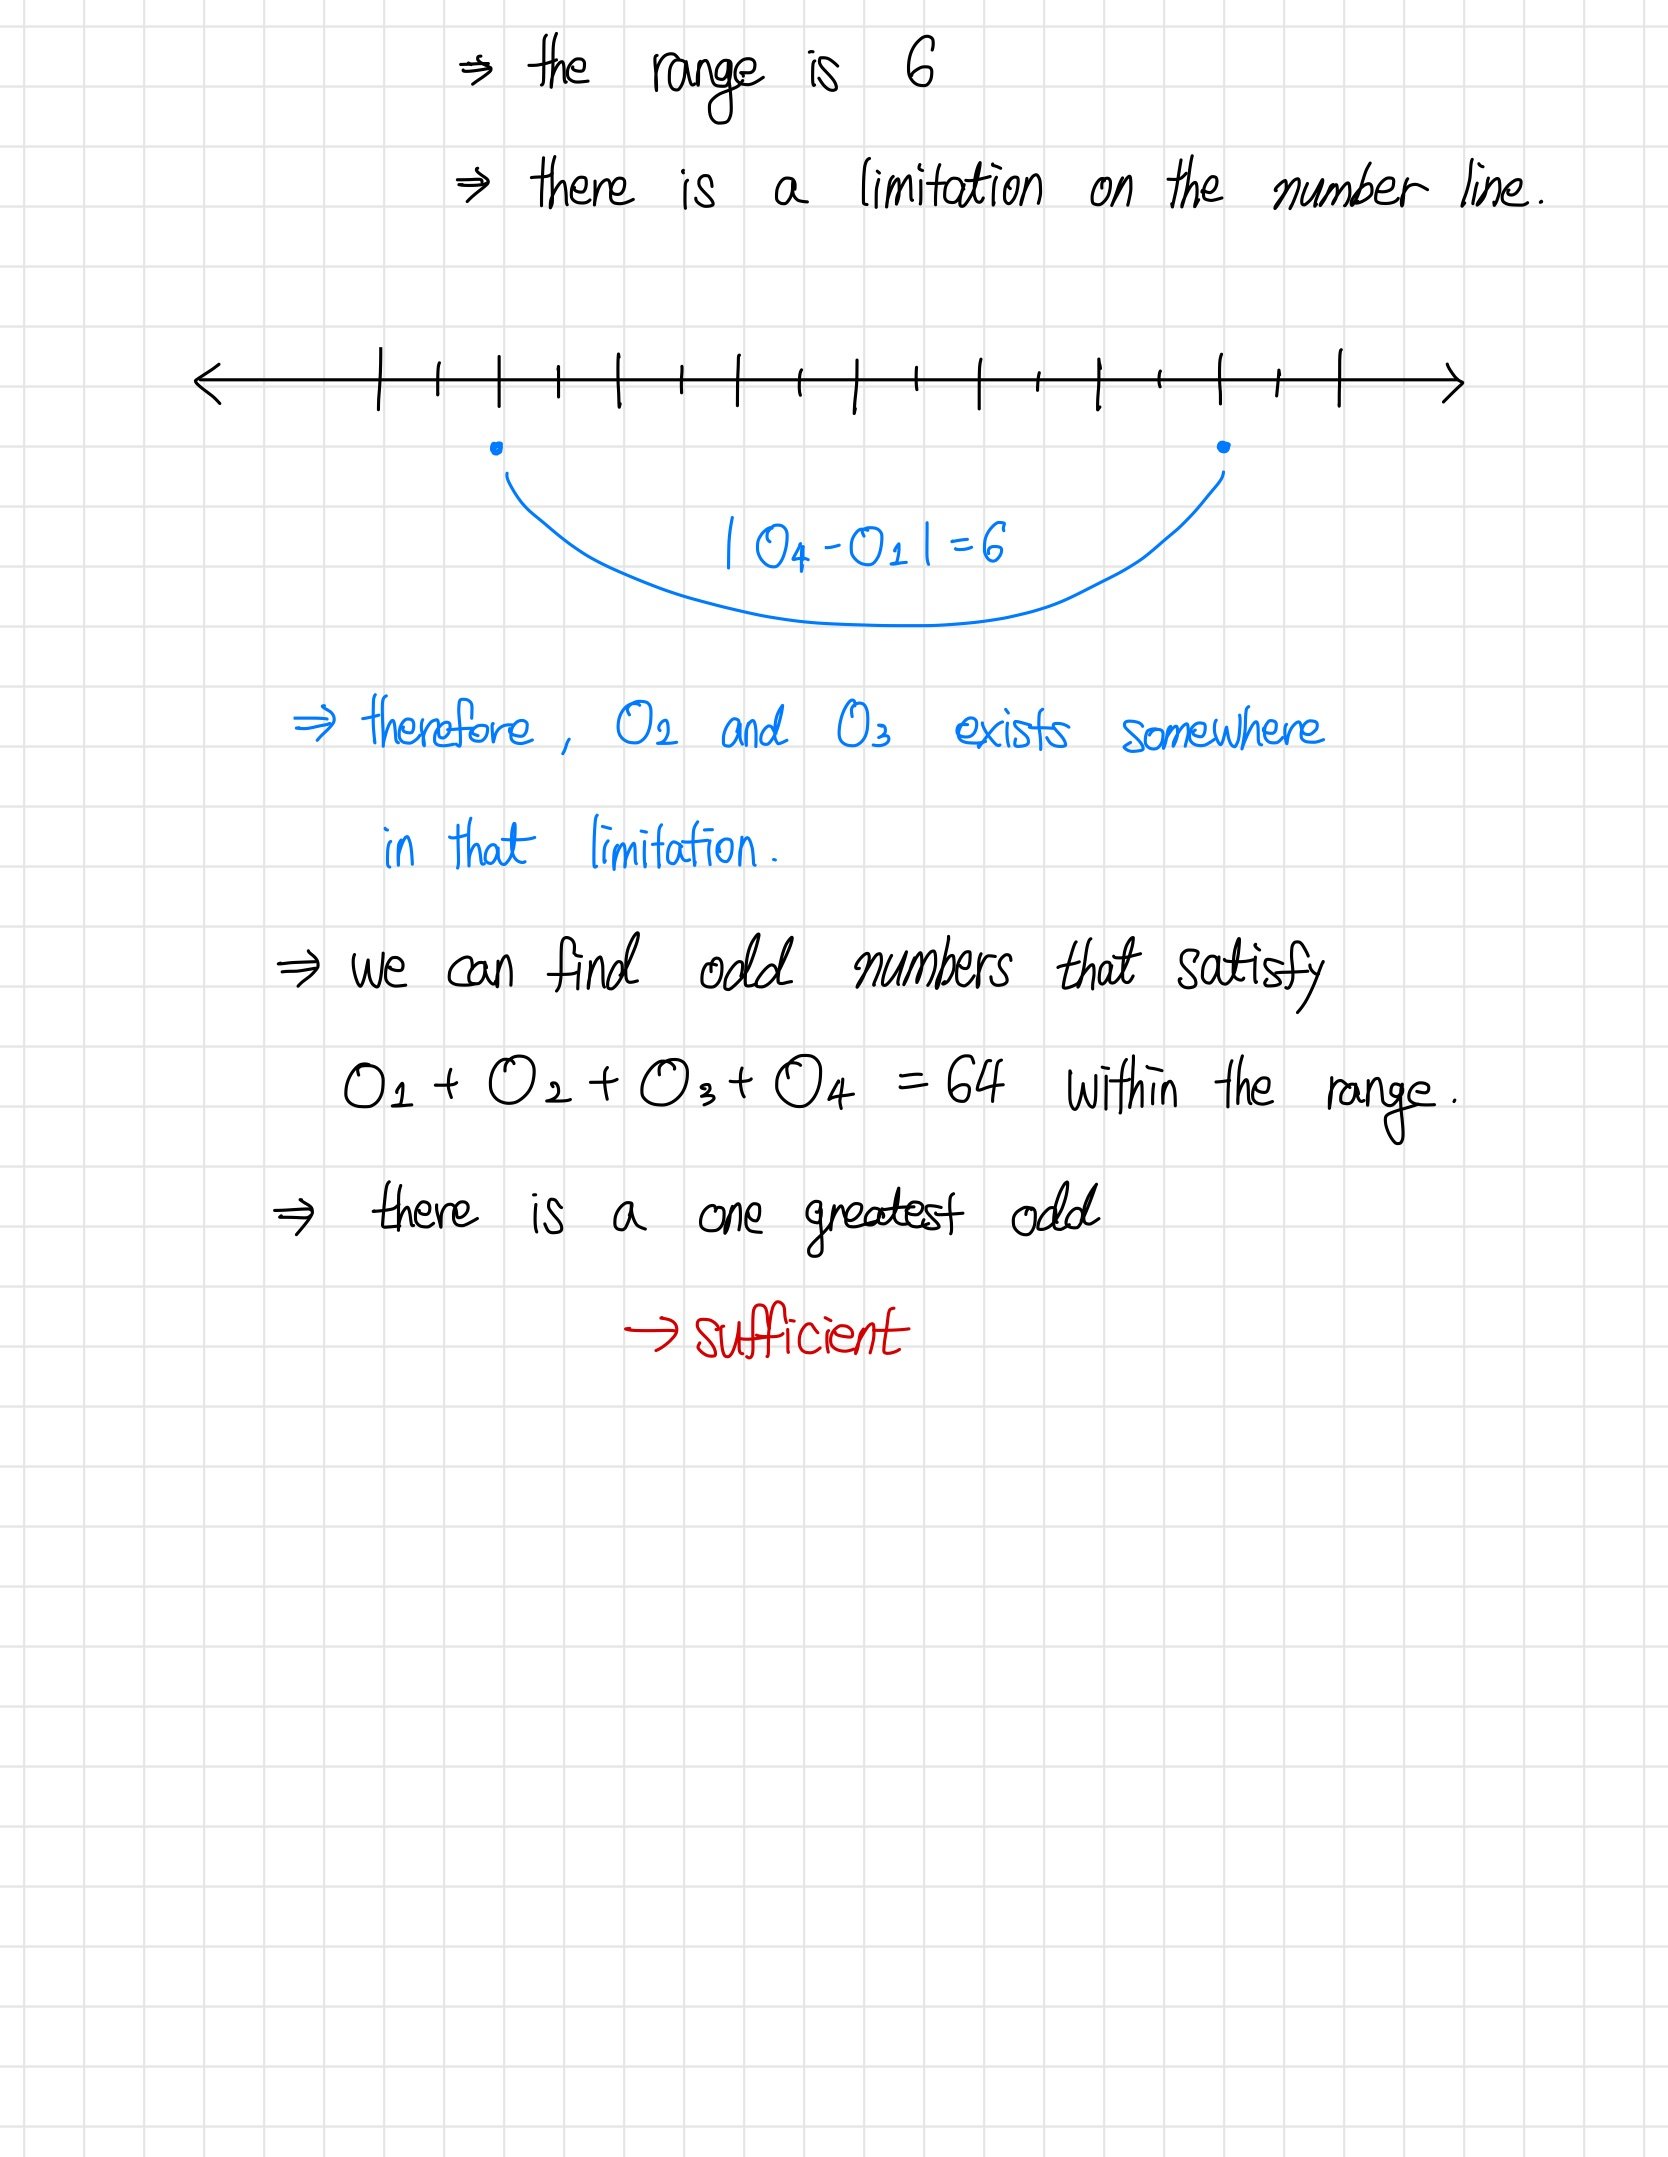 ⇒ the range is 6
⇒ there is a limitation on the number line.
| O₄ - O₁ | = 6
⇒ therefore, O₂ and O₃ exists somewhere
in that limitation.
⇒ we can find odd numbers that satisfy
O₁ + O₂ + O₃ + O₄ = 64 within the range.
⇒ there is a one greatest odd
→ sufficient